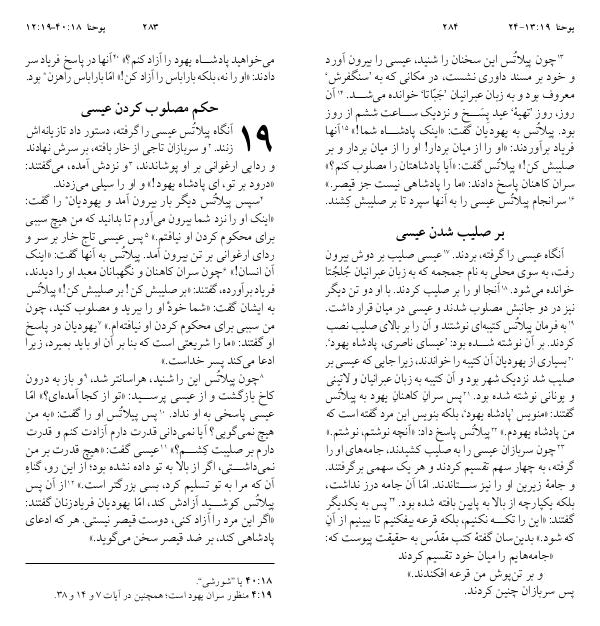 یوحنا ۴۰:۱۸-۱۲:۱۹ ۲۸۳
می‌خواهید پادشاه یهود را آزاد کنم؟» ۴۰آنها در پاسخ فریاد سر
دادند: «او را نه، بلکه باراباس را آزاد کن!» امّا باراباس راهزن* بود.
حکم مصلوب کردن عیسی
۱۹ آنگاه پیلاتُس عیسی را گرفته، دستور داد تازیانه‌اش
زنند. ۲و سربازان تاجی از خار بافته، بر سرش نهادند
و ردایی ارغوانی بر او پوشاندند، ۳و نزدش آمده، می‌گفتند:
«درود بر تو، ای پادشاه یهود!» و او را سیلی می‌زدند.
۴سپس پیلاتُس دیگر بار بیرون آمد و یهودیان* را گفت:
«اینک او را نزد شما بیرون می‌آورم تا بدانید که من هیچ سببی
برای محکوم کردن او نیافتم.» ۵پس عیسی تاج خار بر سر و
ردای ارغوانی بر تن بیرون آمد. پیلاتُس به آنها گفت: «اینک
آن انسان!» ۶چون سران کاهنان و نگهبانان معبد او را دیدند،
فریاد برآورده، گفتند: «بر صلیبش کن! بر صلیبش کن!» پیلاتُس
به ایشان گفت: «شما خودْ او را ببرید و مصلوب کنید، چون
من سببی برای محکوم کردن او نیافته‌ام.» ۷یهودیان در پاسخ
او گفتند: «ما را شریعتی است که بنا بر آن او باید بمیرد، زیرا
ادعا می‌کند پسر خداست.»
۸چون پیلاتُس این را شنید، هراسانتر شد، ۹و باز به درون
کاخ بازگشت و از عیسی پرسید: «تو از کجا آمده‌ای؟» امّا
عیسی پاسخی به او نداد. ۱۰پس پیلاتُس او را گفت: «به من
هیچ نمی‌گویی؟ آیا نمی‌دانی قدرت دارم آزادت کنم و قدرت
دارم بر صلیبت کِشم؟» ۱۱عیسی گفت: «هیچ قدرت بر من
نمی‌داشتی، اگر از بالا به تو داده نشده بود؛ از این رو، گناهِ
آن که مرا به تو تسلیم کرد، بسی بزرگتر است.» ۱۲از آن پس
پیلاتُس کوشید آزادش کند، امّا یهودیان فریادزنان گفتند:
«اگر این مرد را آزاد کنی، دوست قیصر نیستی. هر که ادعای
پادشاهی کند، بر ضد قیصر سخن می‌گوید.»
۴۰:۱۸ یا ”شورشی“.
۴:۱۹ منظور سران یهود است؛ همچنین در آیات ۷ و ۱۴ و ۳۸.
یوحنا ۱۳:۱۹-۲۴ ۲۸۴
۱۳چون پیلاتُس این سخنان را شنید، عیسی را بیرون آورد
و خود بر مسند داوری نشست، در مکانی که به ‘سنگفرش’
معروف بود و به زبان عبرانیان ‘جَبّاتا’ خوانده می‌شد. ۱۴آن
روز، روزِ ‘تهیۀ’ عید پِسَخ و نزدیک ساعت ششم از روز
بود. پیلاتُس به یهودیان گفت: «اینک پادشاه شما!» ۱۵آنها
فریاد برآوردند: «او را از میان بردار! او را از میان بردار و بر
صلیبش کن!» پیلاتُس گفت: «آیا پادشاهتان را مصلوب کنم؟»
سران کاهنان پاسخ دادند: «ما را پادشاهی نیست جز قیصر.»
۱۶سرانجام پیلاتُس عیسی را به آنها سپرد تا بر صلیبش کِشند.
بر صلیب شدن عیسی
آنگاه عیسی را گرفته، بردند. ۱۷عیسی صلیب بر دوش بیرون
رفت، به سوی محلی به نام جمجمه که به زبان عبرانیان جُلجُتا
خوانده می‌شود. ۱۸آنجا او را بر صلیب کردند. با او دو تن دیگر
نیز در دو جانبش مصلوب شدند و عیسی در میان قرار داشت.
۱۹به فرمان پیلاتُس کتیبه‌ای نوشتند و آن را بر بالای صلیب نصب
کردند. بر آن نوشته شده بود: ‘عیسای ناصری، پادشاه یهود’.
۲۰بسیاری از یهودیان آن کتیبه را خواندند، زیرا جایی که عیسی بر
صلیب شد نزدیک شهر بود و آن کتیبه به زبان عبرانیان و لاتینی
و یونانی نوشته شده بود. ۲۱پس سران کاهنانِ یهود به پیلاتُس
گفتند: «منویس ‘پادشاه یهود’، بلکه بنویس این مرد گفته است که
من پادشاه یهودم.» ۲۲پیلاتُس پاسخ داد: «آنچه نوشتم، نوشتم.»
۲۳چون سربازان عیسی را به صلیب کشیدند، جامه‌های او را
گرفته، به چهار سهم تقسیم کردند و هر یک سهمی برگرفتند.
و جامۀ زیرین او را نیز ستاندند. امّا آن جامه درز نداشت،
بلکه یکپارچه از بالا به پایین بافته شده بود. ۲۴پس به یکدیگر
گفتند: «این را تکه نکنیم، بلکه قرعه بیفکنیم تا ببینیم از آنِ
که شود.» بدین‌سان گفتۀ کتب مقدّس به حقیقت پیوست که:
«جامه‌هایم را میان خود تقسیم کردند
و بر تن‌پوش من قرعه افکندند.»
پس سربازان چنین کردند.